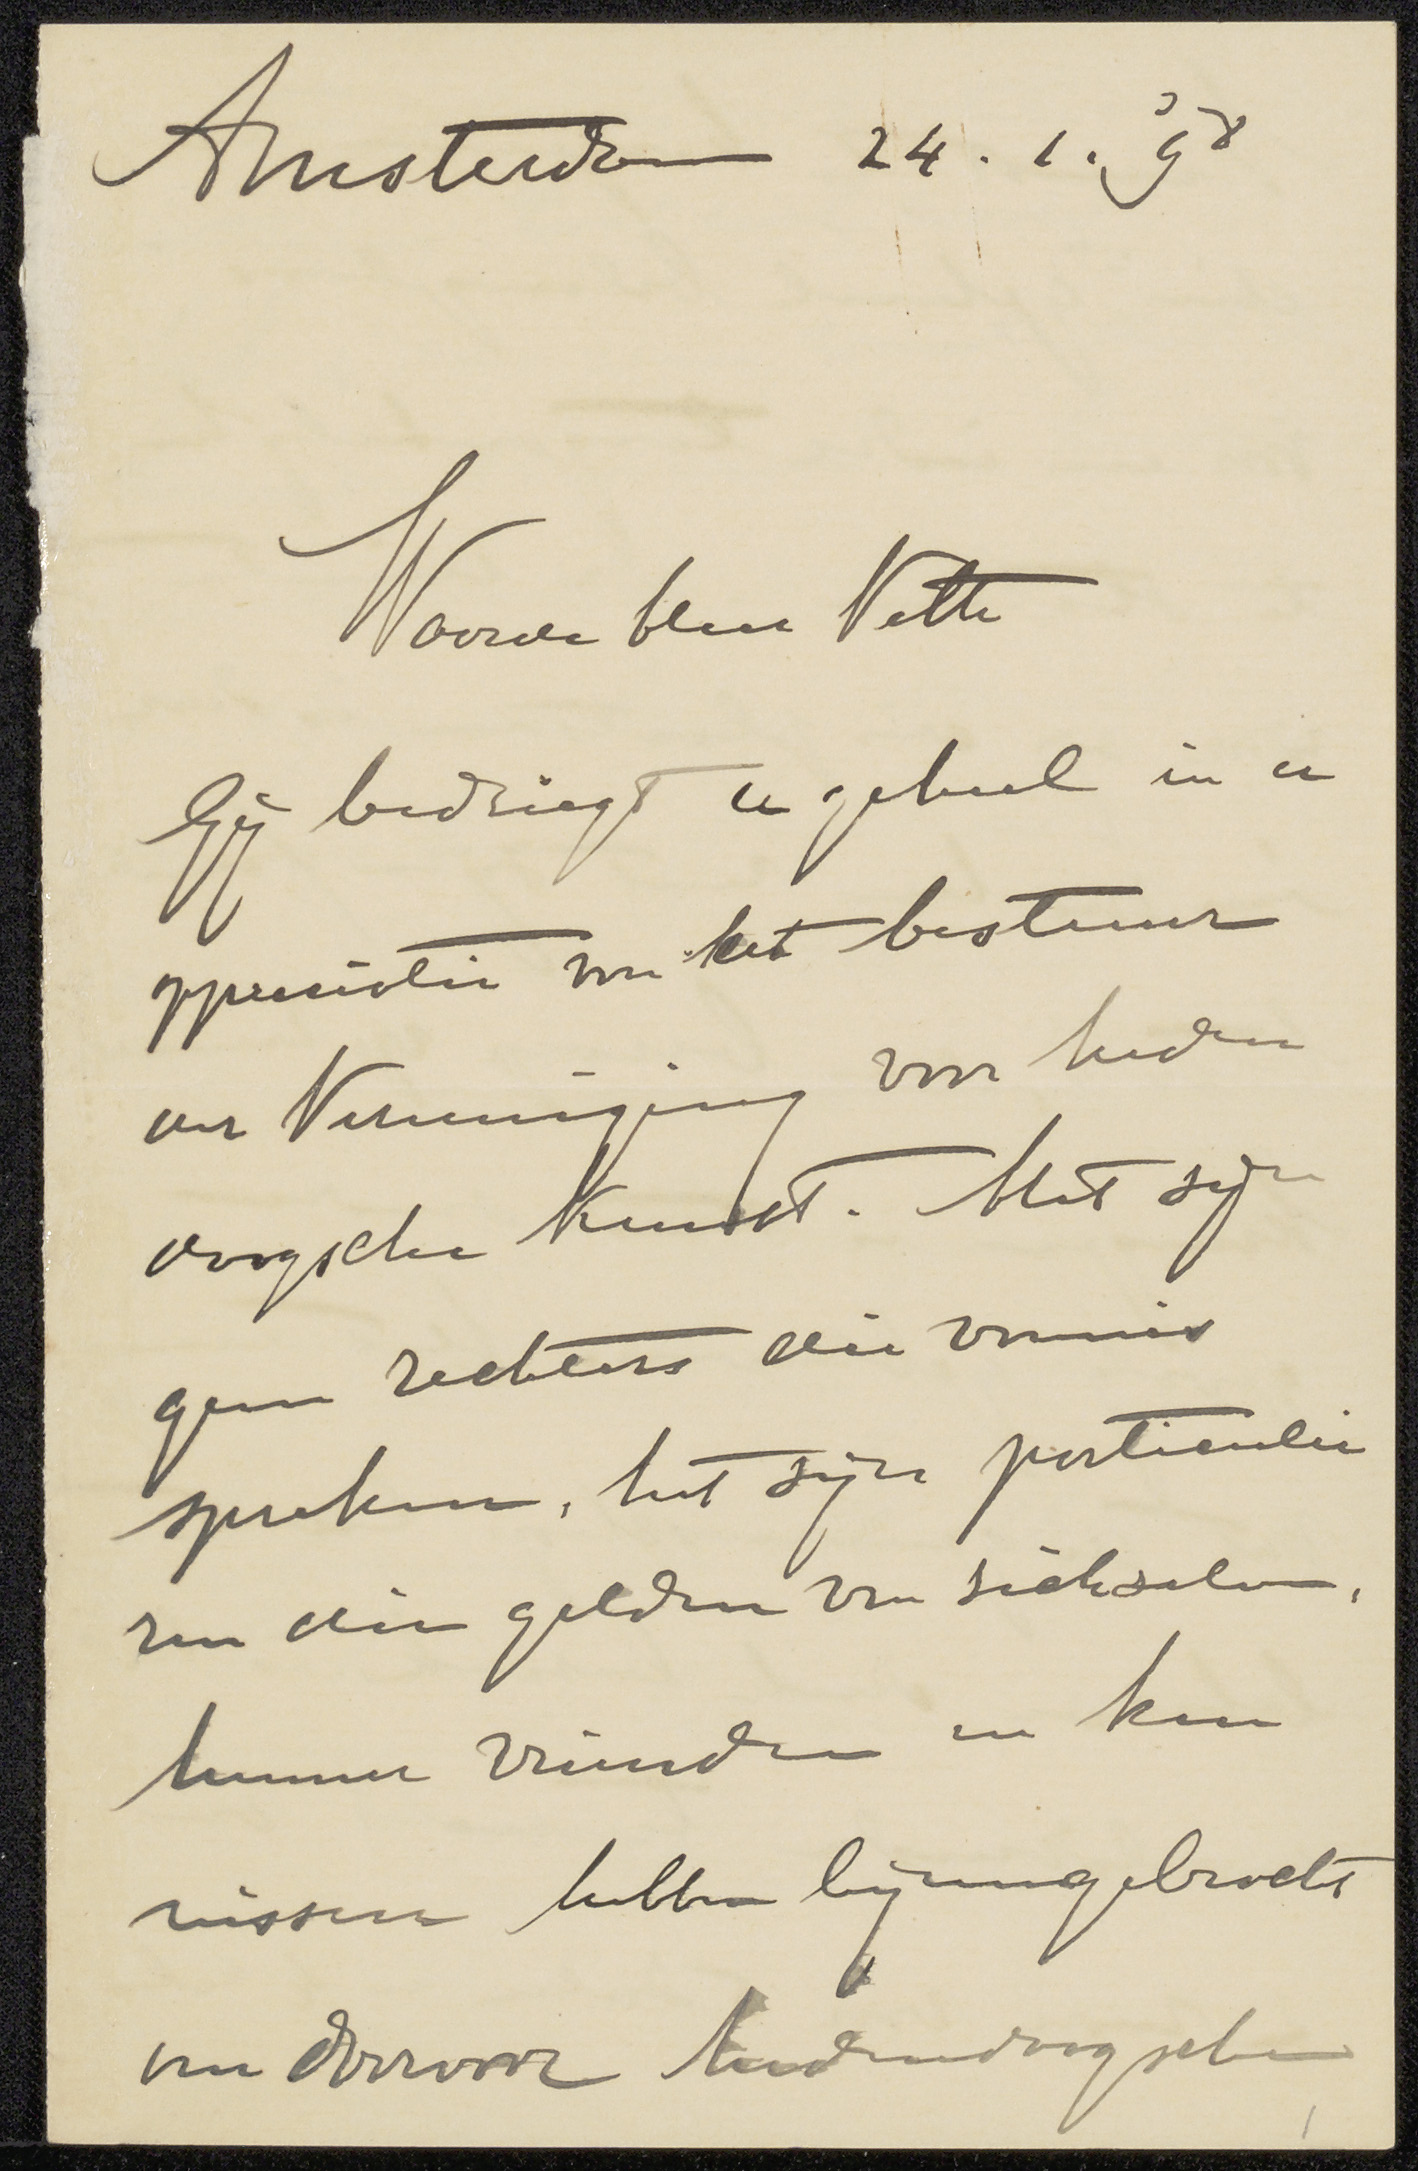 Amsterdam 24.1.'98
Waarde Heer Veth
Gij bedriegt u geheel in u
appreciatie van het bestuur
der Vereeniging voor heden
daagsche Kunst. Het zijn
geen rechters die vonnis
spreken, het zijn particulie
ren die gelden van zichzelven,
hunne vrienden en ken
nissen hebben bijeengebracht
om daarvoor hedendaagsche